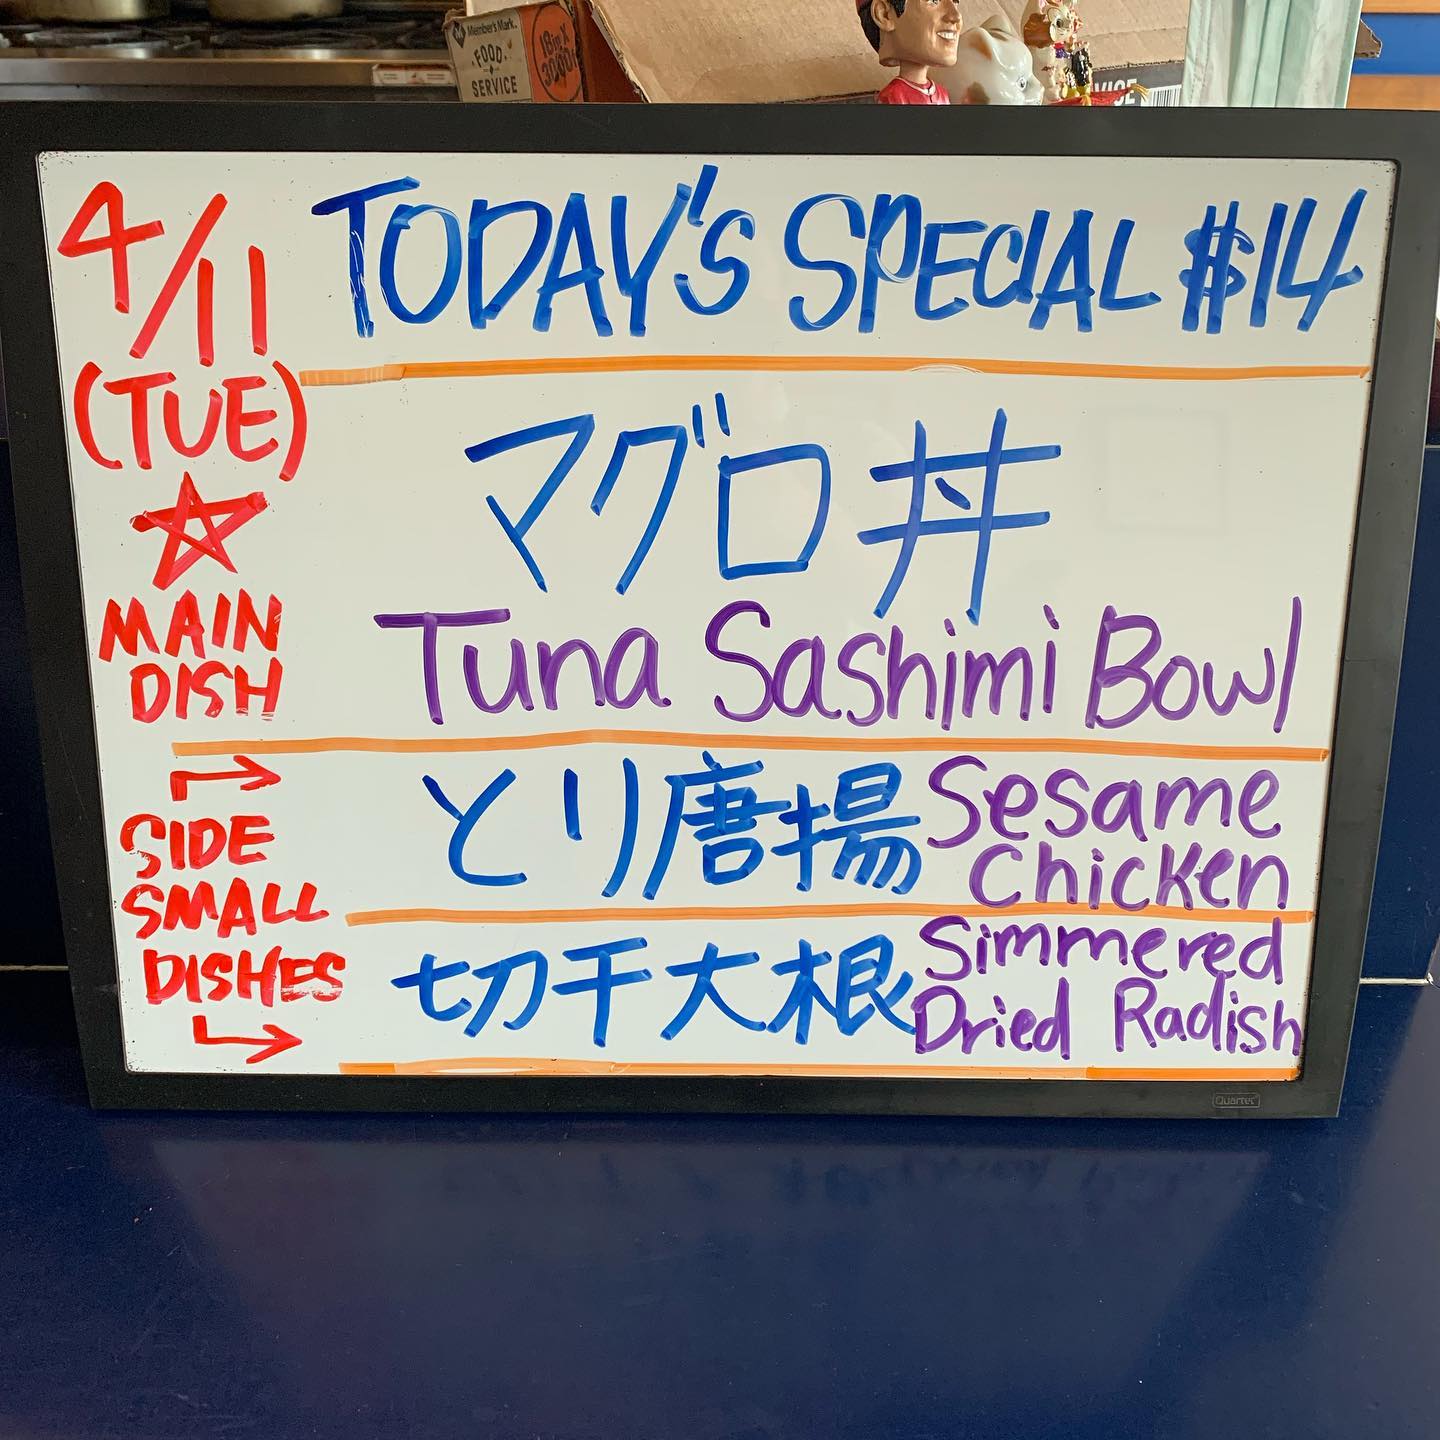 Member's Mark.
FOOD
SERVICE
18in X
3000ft
VICE
4/11
(TUE)
TODAY'S SPECIAL $14
MAIN
DISH
マグロ丼
Tuna Sashimi Bowl
SIDE
SMALL
DISHES
とり唐揚
Sesame
Chicken
切干大根
Simmered
Dried Radish
Quartet